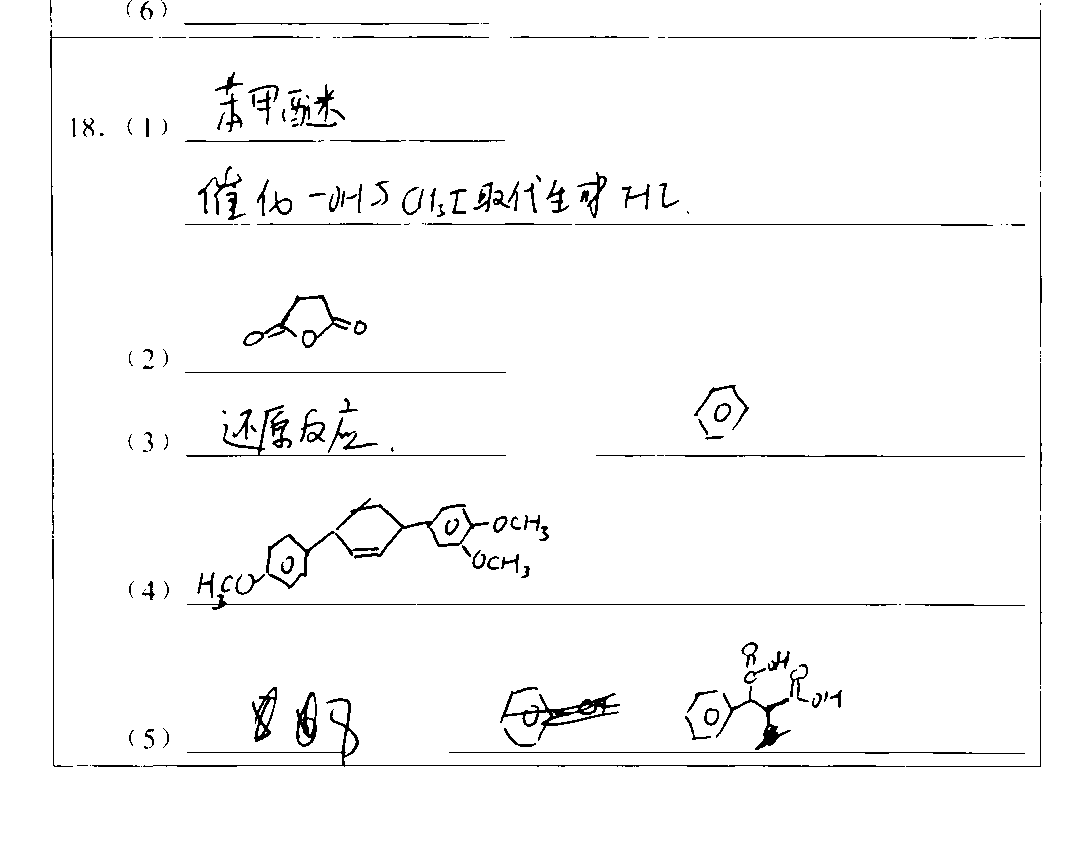 (6)
18. (1) 苯甲醚
催化-OH与CH₃I取代生成HI.
(2) O O O
(3) 还原反应.
(4) H₃CO OCH₃
OCH₃
(5) 8 O OH O OH